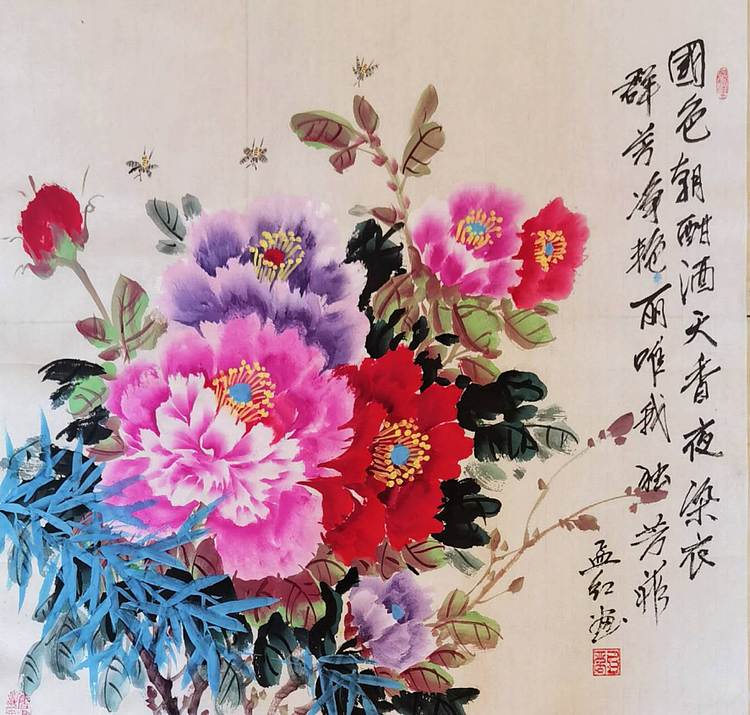 國色朝酣酒天香夜染衣
群芳净艳丽唯我独芳菲
孟红画